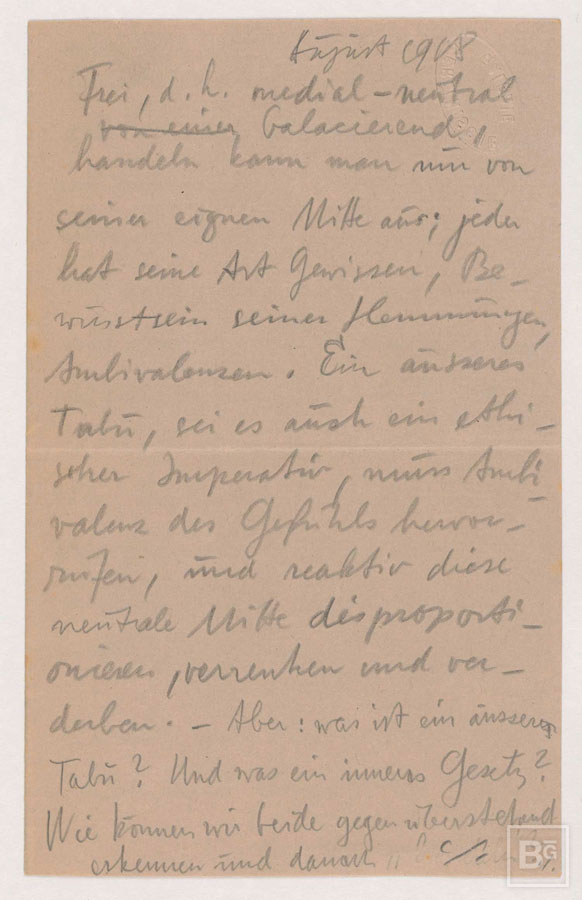 August 1918
Frei, d. h. medial-neutral
von einer balacierend,
handeln kann man nur von
seiner eignen Mitte aus; jeder
hat seine Art Gewissen, Be-
wusstsein seiner Hemmungen,
Ambivalenzen. Ein äusseres
Tabu, sei es auch ein ethi-
scher Imperativ, muss Ambi-
valenz des Gefühls hervor-
rufen, und reaktiv diese
neutrale Mitte disproporti-
onieren, verrenken und ver-
derben. – Aber: was ist ein äusseres
Tabu? Und was ein inneres Gesetz?
Wie können wir beide gegenüberstehend
erkennen und danach
BG